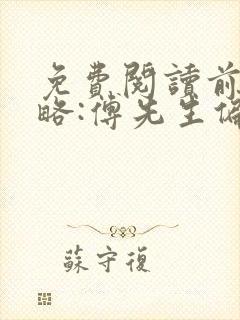 免費閱讀前
略:傅先生偏
蘇守復